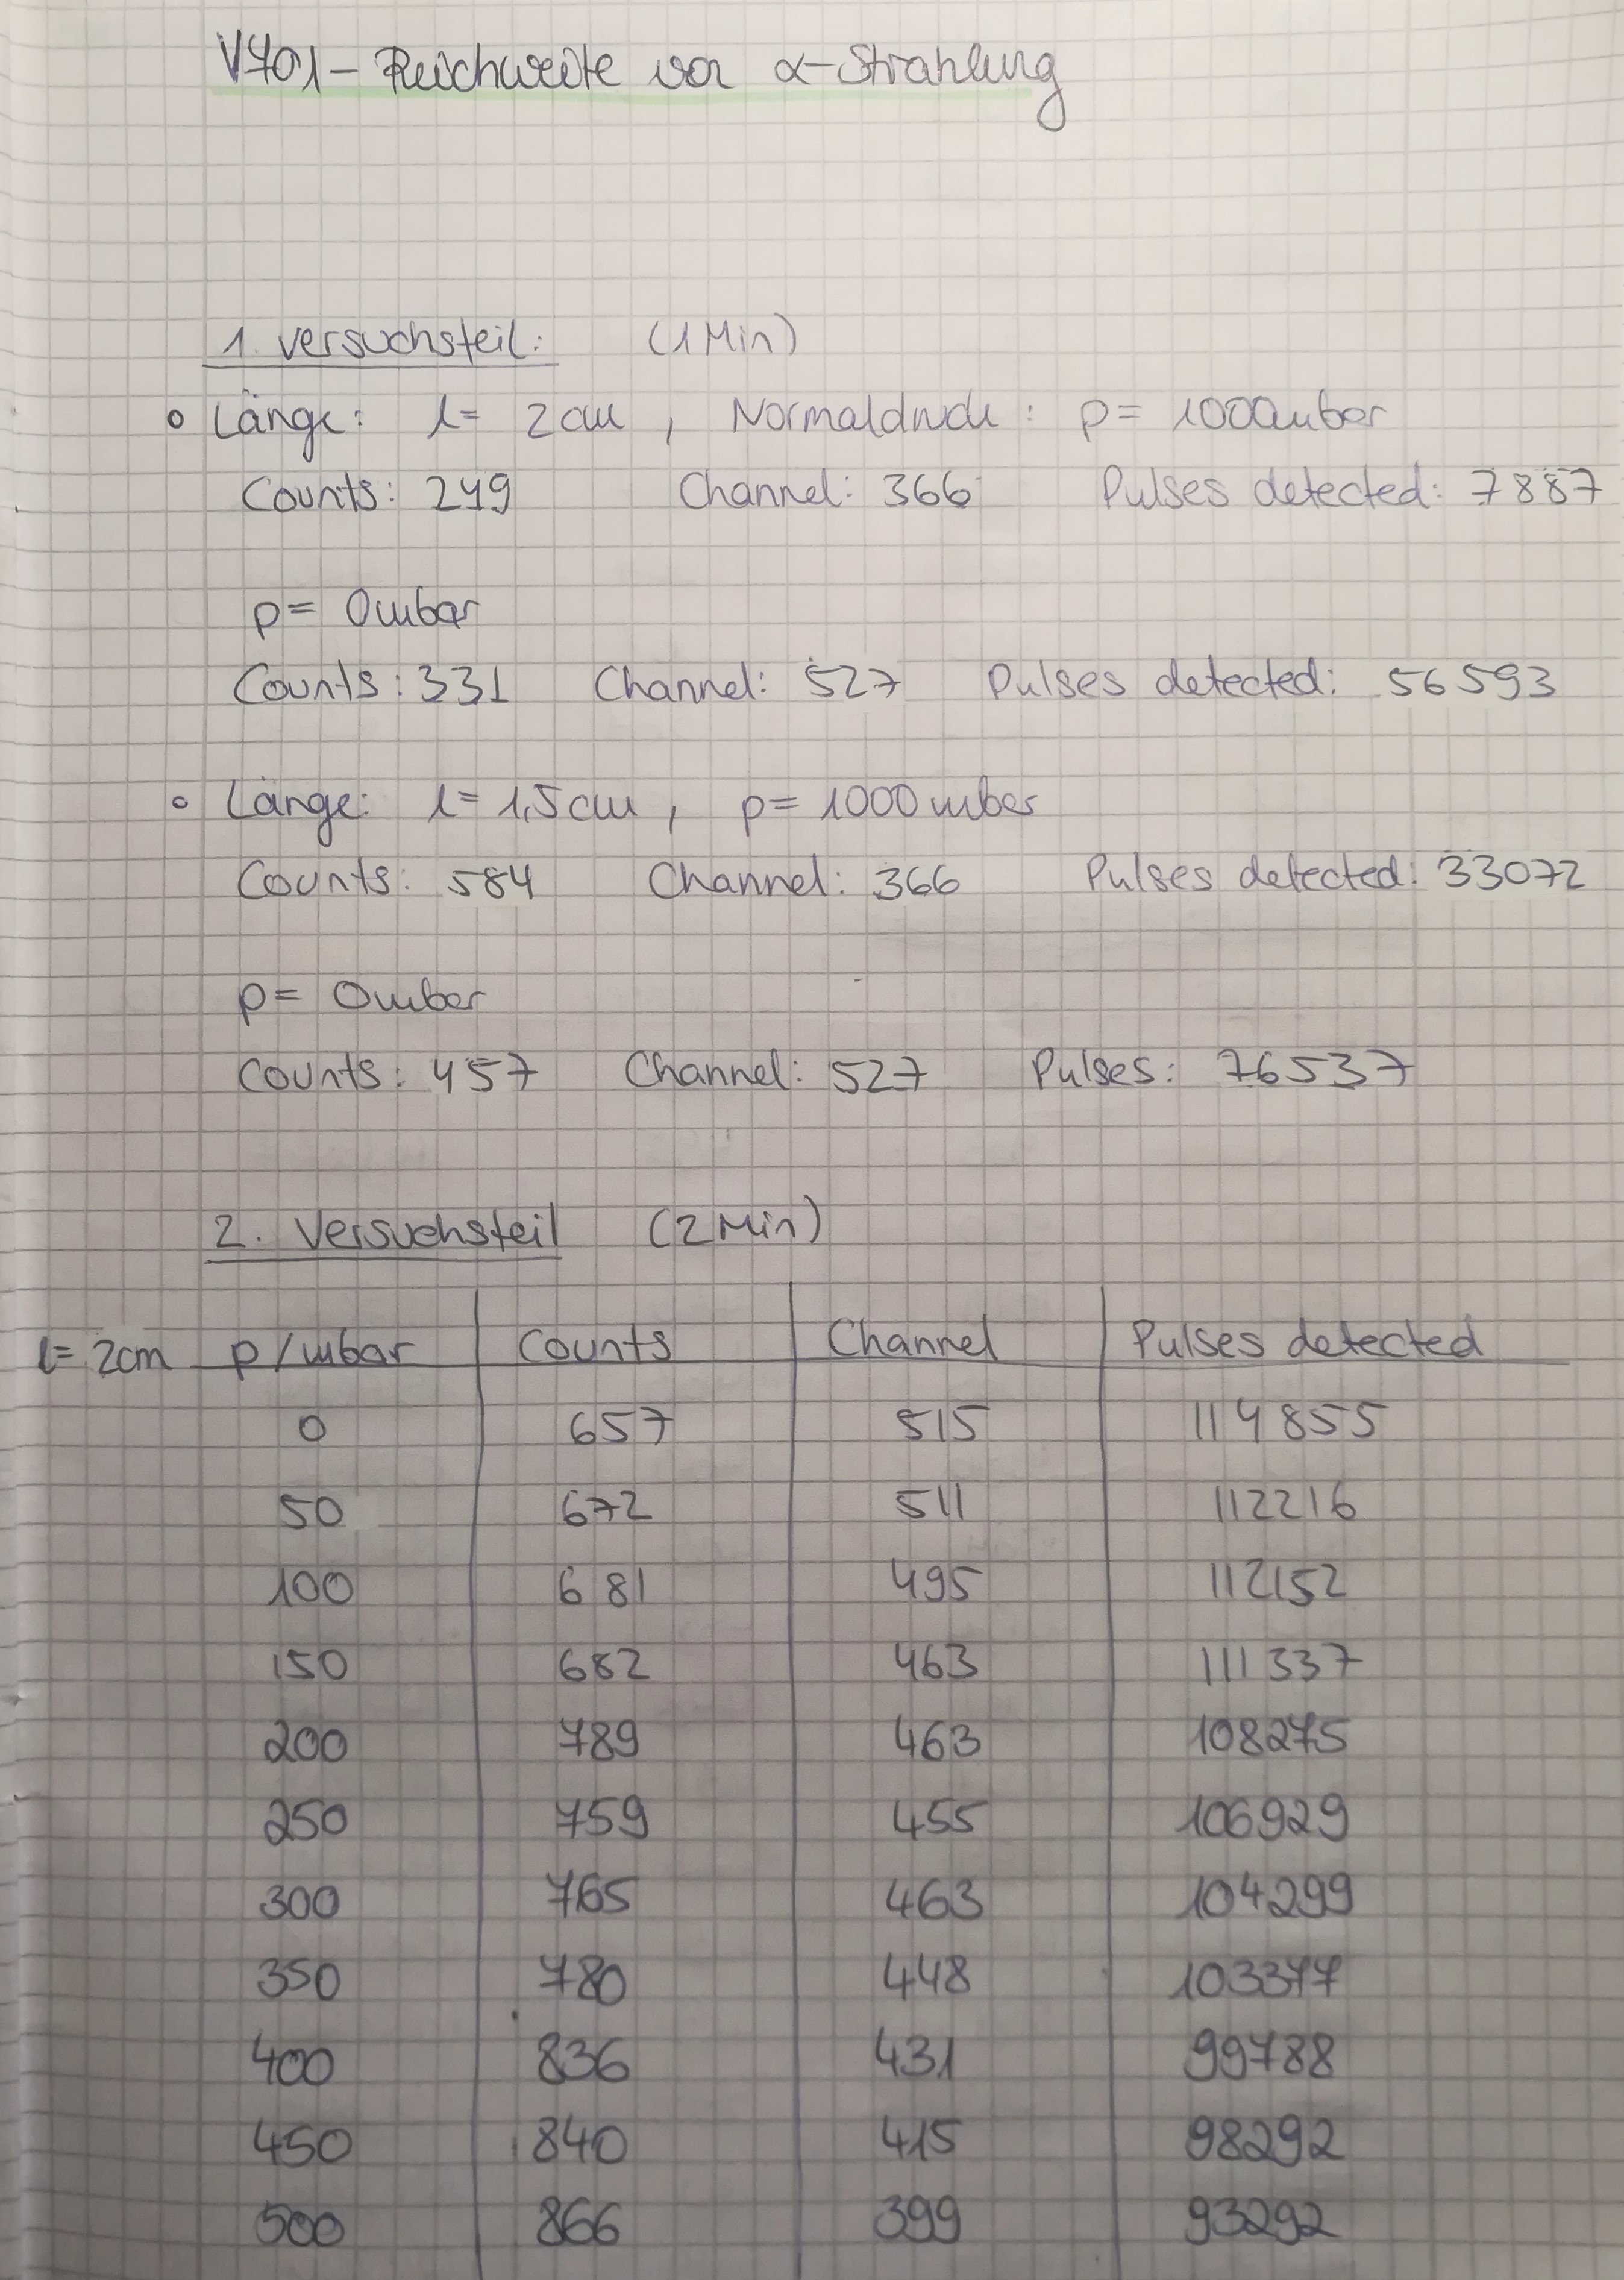 V701 – Reichweite von α-Strahlung
1. Versuchsteil: (1 Min)
Länge: l = 2cm , Normaldruck : p = 1000mbar
Counts: 249 Channel: 366 Pulses detected: 7887
p = 0mbar
Counts: 331 Channel: 527 Pulses detected: 56593
Länge: l = 1,5cm , p = 1000mbar
Counts: 584 Channel: 366 Pulses detected: 33072
p = 0mbar
Counts: 457 Channel: 527 Pulses: 76537
2. Versuchsteil (2 Min)
l = 2cm p / mbar Counts Channel Pulses detected
0 657 515 114855
50 672 511 112216
100 681 495 112152
150 682 463 111337
200 789 463 108275
250 759 455 106929
300 765 463 104299
350 780 448 103377
400 836 431 99788
450 840 415 98292
500 866 399 93292